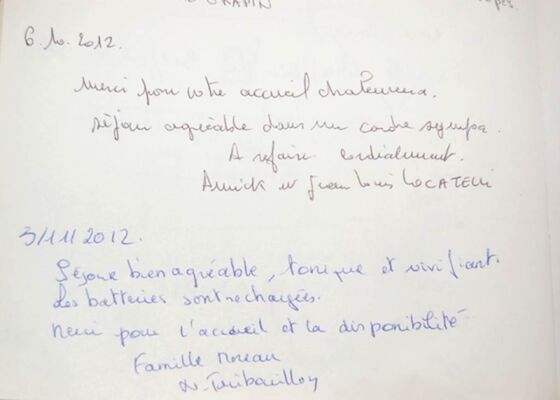 GRAPIN
6.10.2012.
Merci pour votre accueil chaleureux.
séjour agréable dans un cadre sympa.
A refaire. cordialement.
Annick et Jean Louis LOCATELLI
3/11/2012.
Séjour bien agréable, tonique et vivifiant.
Les batteries sont rechargées.
Merci pour l'accueil et la disponibilité
Famille Moreau